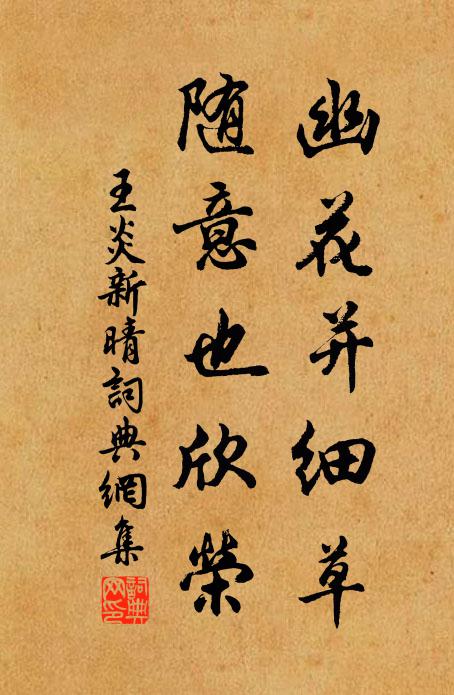 幽花并细草
随意也欣榮
王炎新晴詞典網集
詞典網印